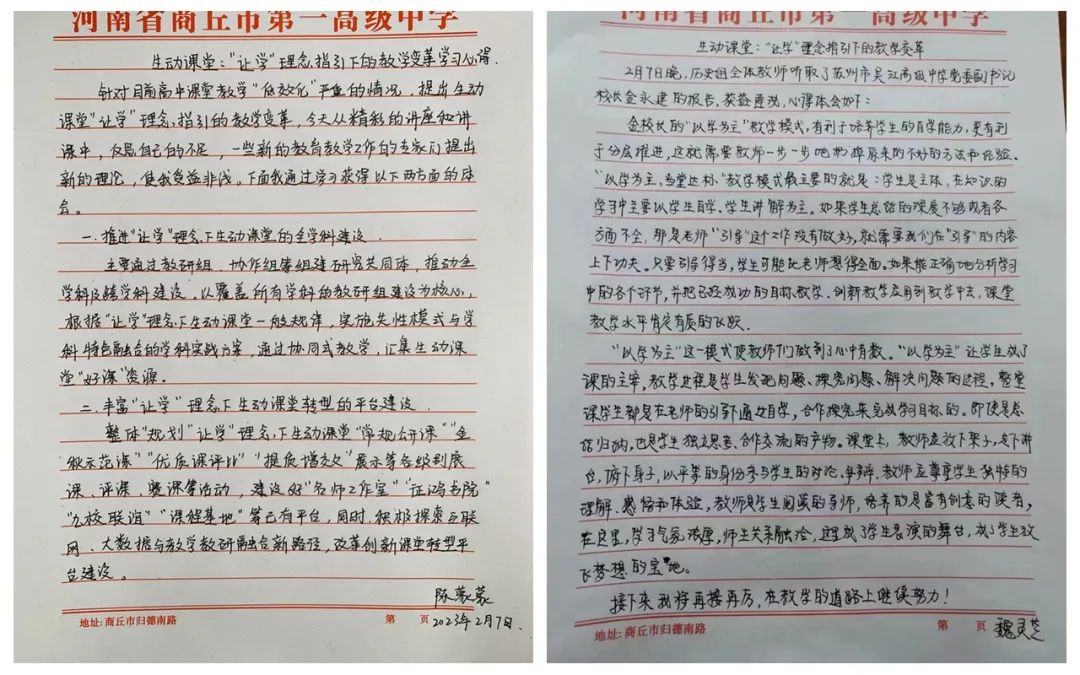 河南省商丘市第一高级中学
生动课堂："让学"理念指引下的教学变革学习心得.
针对目前高中课堂教学"低效化"严重的情况，提出生动
课堂"让学"理念指引的教学变革，今天从精彩的讲座和讲
课中，反思自己的不足，一些新的教育教学工作的专家们提出
新的理论，使我受益非浅。下面我通过学习获得以下两方面的体
会。
一.推进"让学"理念下生动课堂的全学科建设.
主要通过教研组、协作组等组建研究共同体，推动全
学科及跨学科建设.以覆盖所有学科的教研组建设为核心，
根据"让学"理念下生动课堂一般规律，实施共性模式与学
科特色融合的学科实践方案，通过协同式教学，汇集生动课
堂"好课"资源。
二.丰富"让学"理念下生动课堂转型的平台建设.
整体"规划""让学"理念下生动课堂"常规公开课""金
秋示范课""优质课评比""提质增效"展示等各级别展
课、评课、赛课等活动，建设好"名师工作室""应鸿书院"
"九校联谊""课程基地"等已有平台，同时，积极探索互联
网、大数据与教学教研融合新路径，改革创新课堂转型平
台建设。
陈蒙蒙
2023年2月7日.
地址: 商丘市归德南路
第 页
河南省商丘市第一高级中学
生动课堂："让学"理念指引下的教学变革
2月7日晚，历史组全体教师听取了苏州市吴江高级中学党委副书记
校长金永建的报告，获益匪浅，心得体会如下：
金校长的"以学为主"教学模式，有利于培养学生的自学能力，更有利
于分层推进，这就需要教师一步一步地扔掉原来的不好的方法和经验。
"以学为主、当堂达标"教学模式最主要的就是：学生是主体，在知识的
学习中主要以学生自学、学生讲解为主。如果学生总结的深度不够或者各
方面不全，那是老师"引导"这个工作没有做好，就需要我们在"引导"的内容
上下功夫。只要引导得当，学生可能比老师想得全面。如果能正确地分析学习
中的各个环节，并把已经成功的目标教学、创新教学应用到教学中去，课堂
教学水平肯定有质的飞跃.
"以学为主"这一模式使教师们做到了心中有数。"以学为主"让学生成了
课的主宰，教学过程是学生发现问题、探究问题、解决问题的过程，整堂
课学生都是在老师的引导下通过自学，合作探究来完成学习目标的。即使是总
结归纳，也是学生独立思考、合作交流的产物。课堂上，教师应放下架子，走下讲
台，俯下身子，以平等的身份参与学生的讨论、争辩.教师应尊重学生独特的
理解、感悟和体验，教师是学生阅读的导师，培养的是富有创意的读者，
在这里，学习气氛浓厚，师生关系融洽，这里成了学生表演的舞台，成了学生放
飞梦想的宝地。
接下来我将再接再厉，在教学的道路上继续努力！
地址: 商丘市归德南路
第 页
魏灵芝